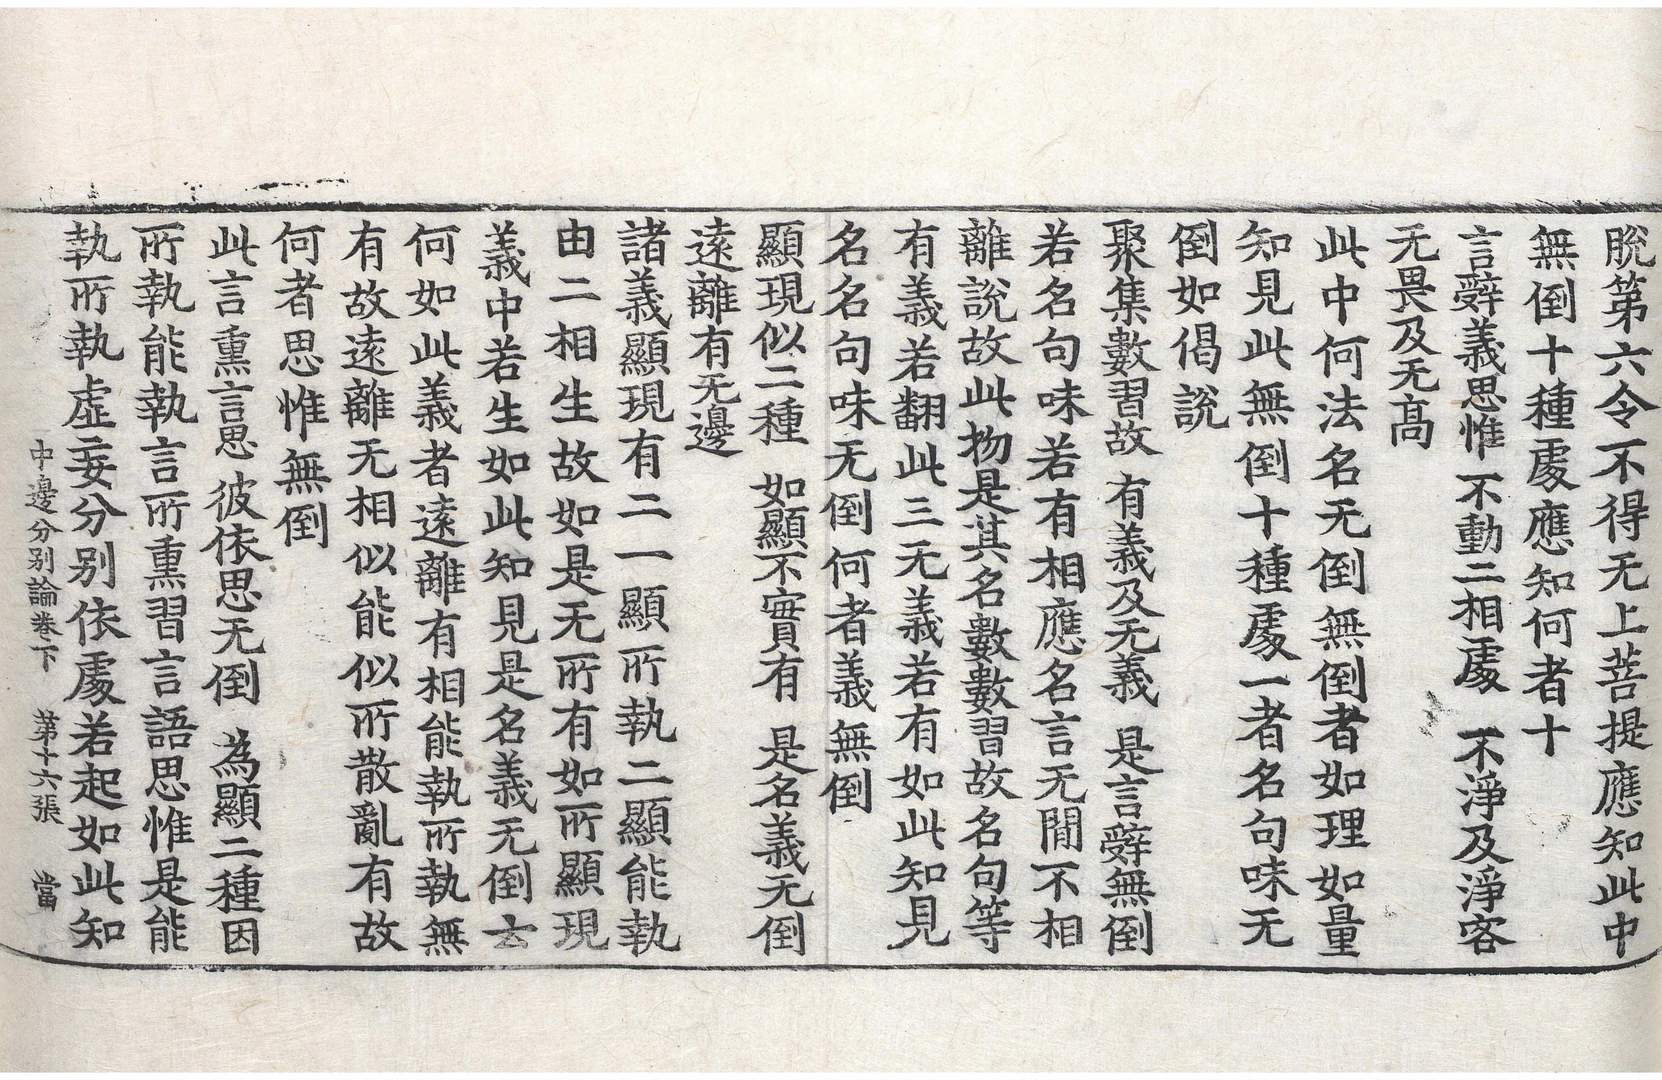 脫第六令不得无上菩提應知此中
無倒十種處應知何者十
言辭義思惟 不動二相處 不淨及淨客
无畏及无高
此中何法名无倒無倒者如理如量
知見此無倒十種處一者名句味无
倒如偈說
聚集數習故 有義及无義 是言辭無倒
若名句味若有相應名言无間不相
離說故此物是其名數數習故名句等
有義若翻此三无義若有如此知見
名名句味无倒何者義無倒
顯現似二種 如顯不實有 是名義无倒
遠離有无邊
諸義顯現有二一顯所執二顯能執
由二相生故如是无所有如所顯現
義中若生如此知見是名義无倒云
何如此義者遠離有相能執所執無
有故遠離无相似能似所散亂有故
何者思惟無倒
此言熏言思 彼依思无倒 為顯二種因
所執能執言所熏習言語思惟是能
執所執虛妄分別依處若起如此知
中邊分別論卷下 第十六張 當